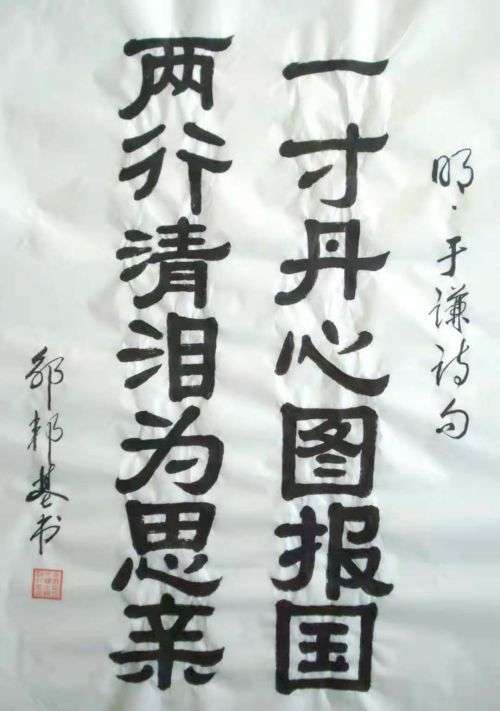 明·于谦诗句
一寸丹心图报国
两行清泪为思亲
邵邦基书